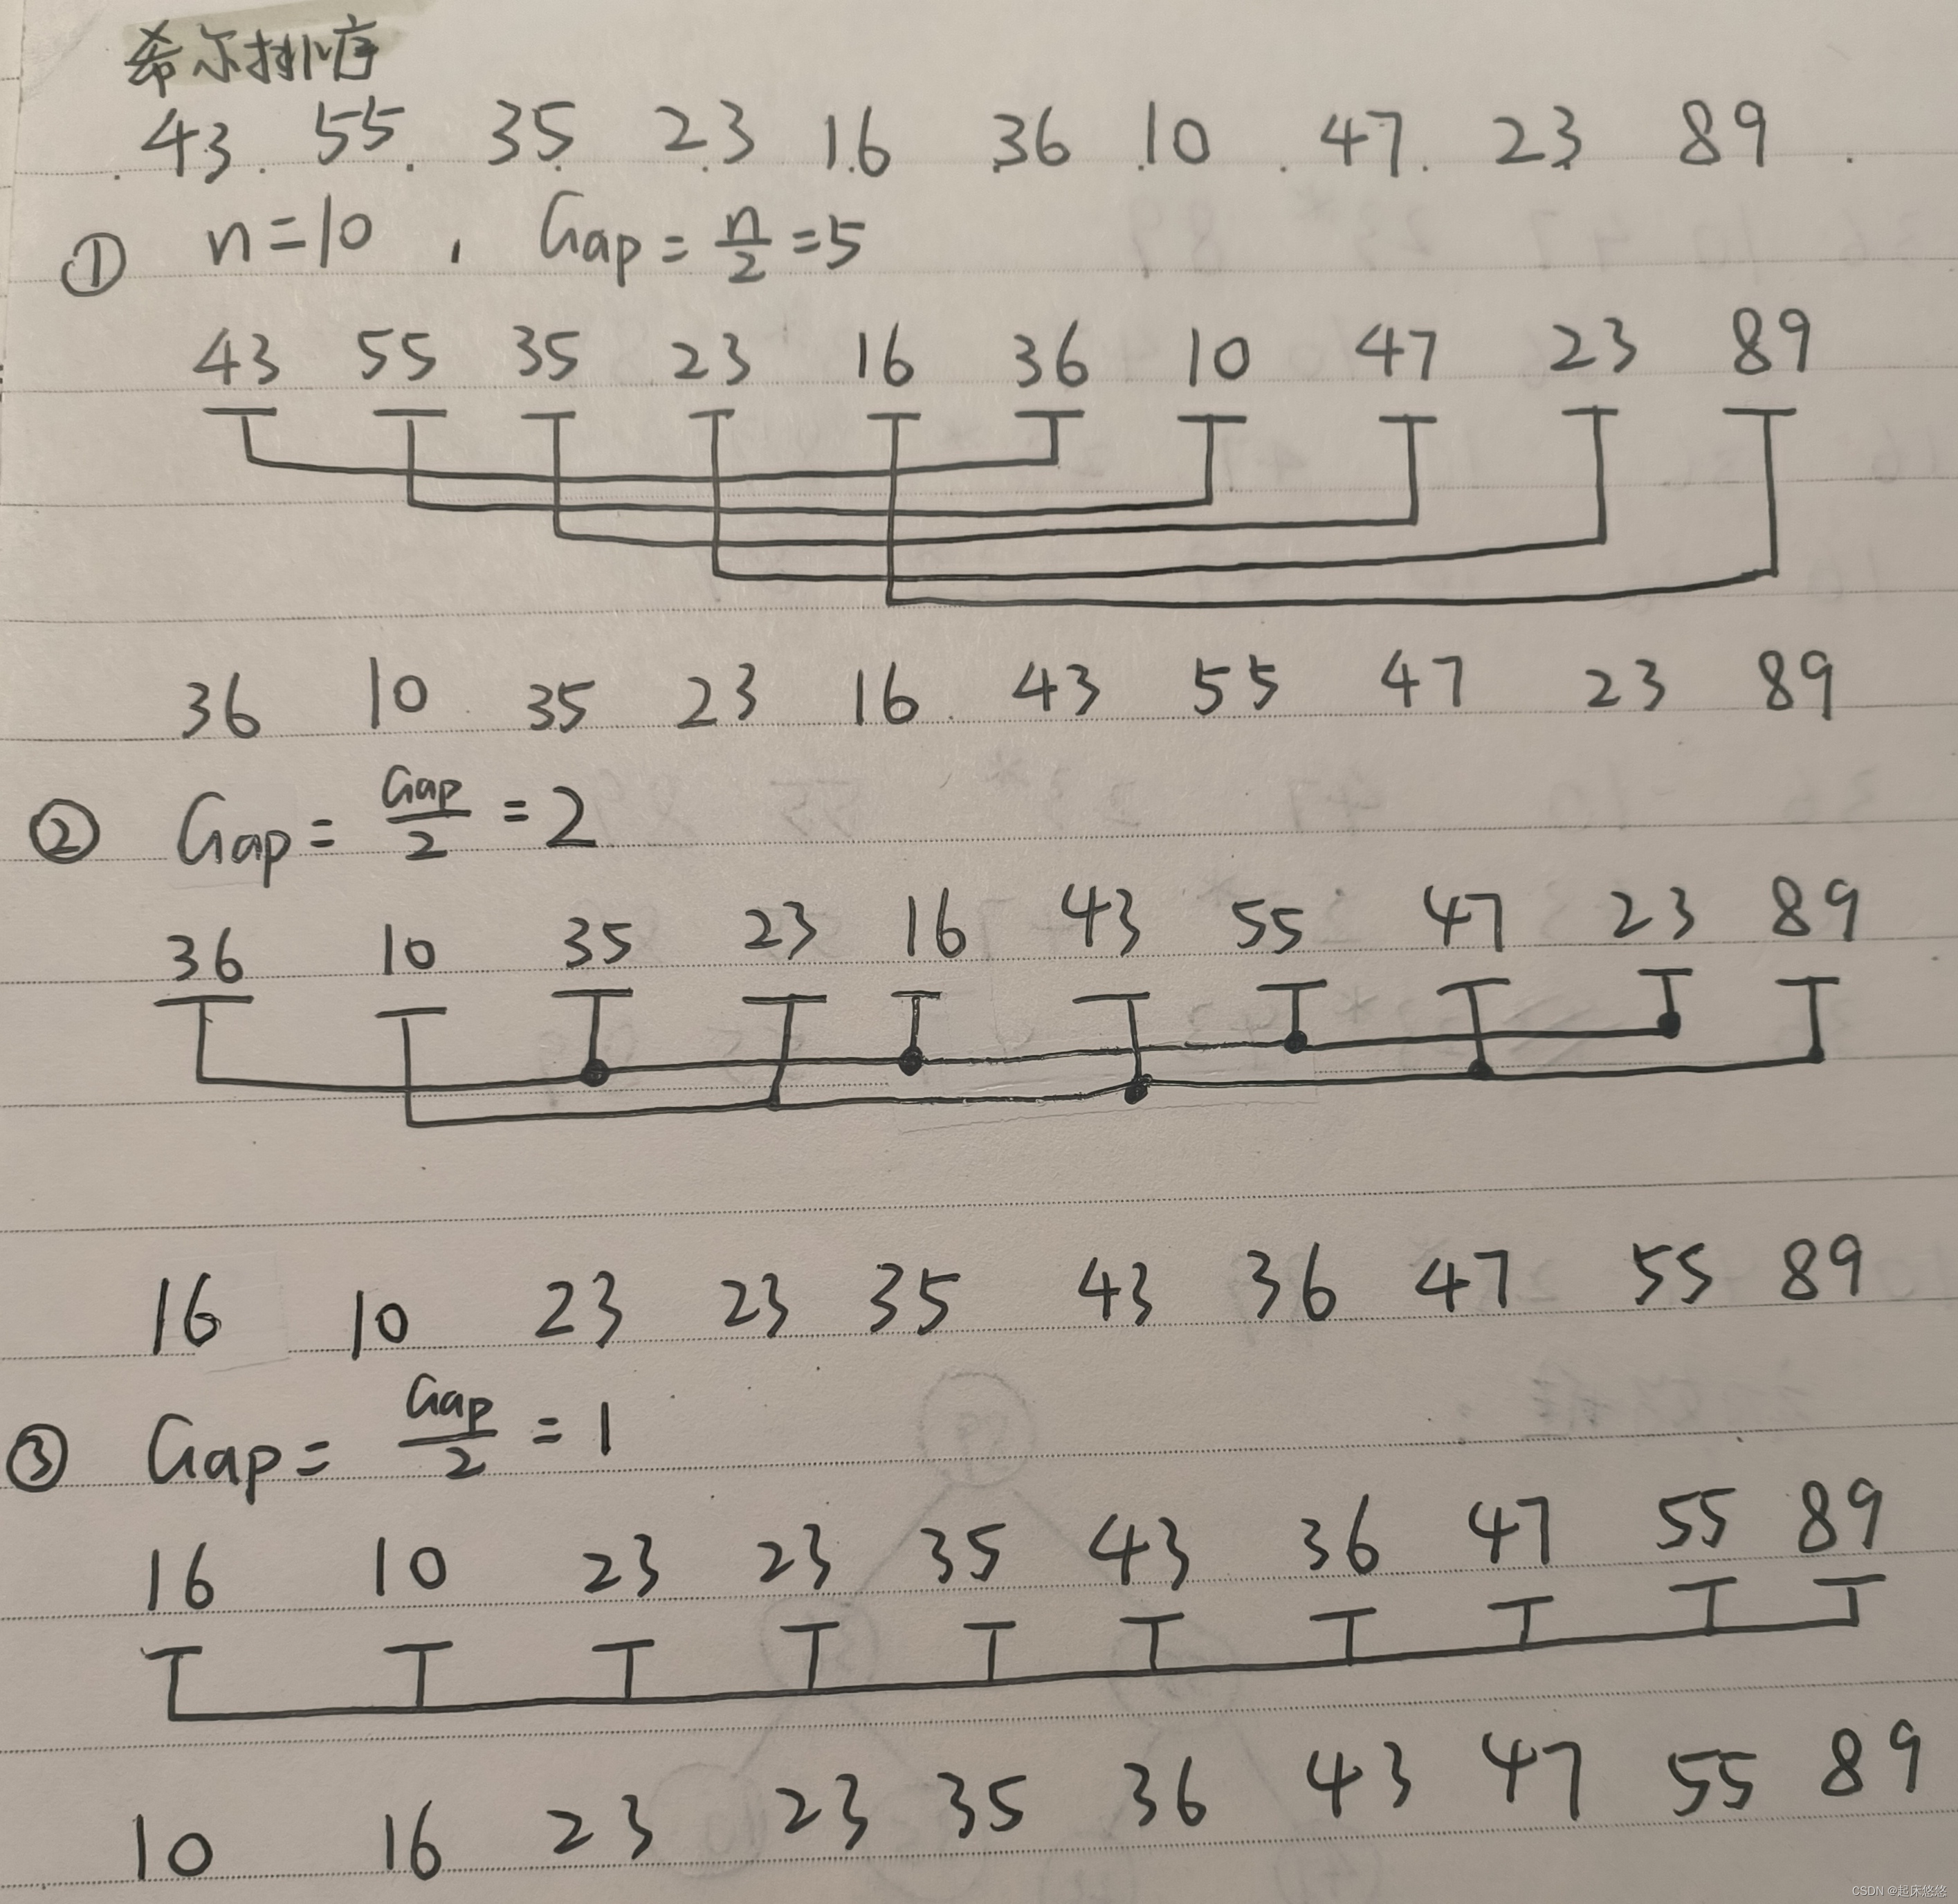 希尔排序
43 55 35 23 16 36 10 47 23 89
① n=10 , Gap = n/2 = 5
43 55 35 23 16 36 10 47 23 89
36 10 35 23 16 43 55 47 23 89
② Gap = Gap/2 = 2
36 10 35 23 16 43 55 47 23 89
16 10 23 23 35 43 36 47 55 89
③ Gap = Gap/2 = 1
16 10 23 23 35 43 36 47 55 89
10 16 23 23 35 36 43 47 55 89
CSDN @起床悠悠